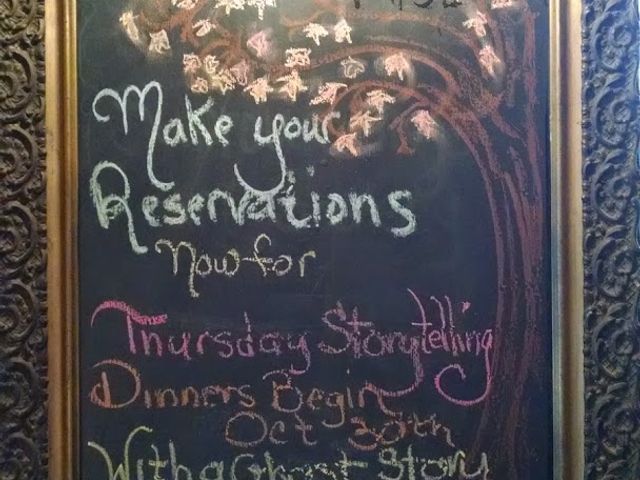 Make your
Reservations
Now for
Thursday Storytelling
Dinners Begin
Oct 30th
With a Ghost Story